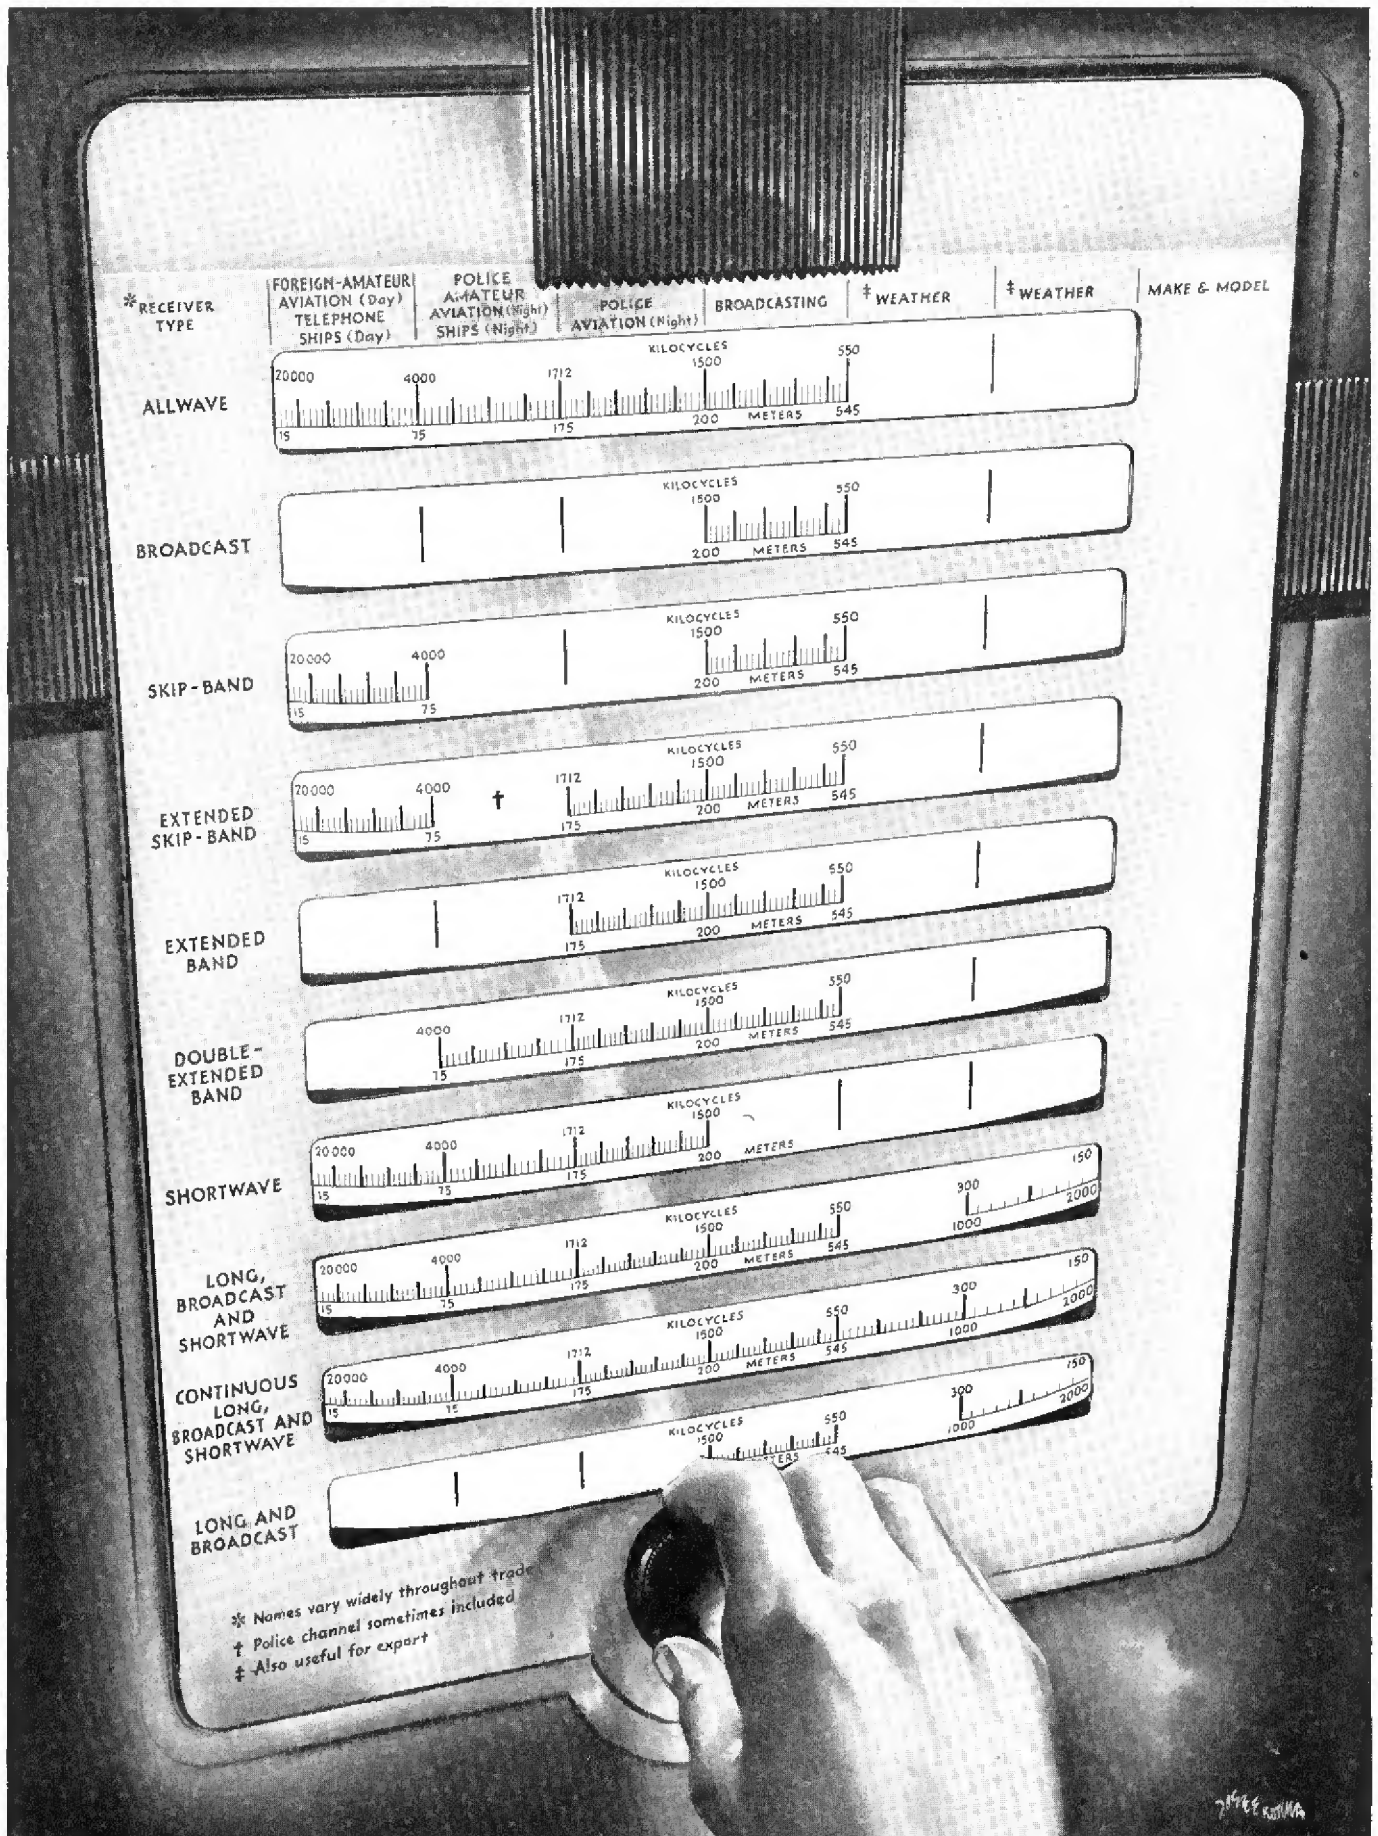 *RECEIVER
TYPE
FOREIGN-AMATEUR
AVIATION (Day)
TELEPHONE
SHIPS (Day)
POLICE
AMATEUR
AVIATION (Night)
SHIPS (Night)
POLICE
AVIATION (Night)
BROADCASTING
‡ WEATHER
‡ WEATHER
MAKE & MODEL
ALLWAVE
KILOCYCLES
20000 4000 1712 1500 550
15 75 175 200 METERS 545
BROADCAST
KILOCYCLES
1500 550
200 METERS 545
SKIP-BAND
KILOCYCLES
20000 4000 1500 550
15 75 200 METERS 545
EXTENDED
SKIP-BAND
KILOCYCLES
20000 4000 † 1712 1500 550
15 75 175 200 METERS 545
EXTENDED
BAND
KILOCYCLES
1712 1500 550
175 200 METERS 545
DOUBLE-
EXTENDED
BAND
KILOCYCLES
4000 1712 1500 550
15 175 200 METERS 545
SHORTWAVE
KILOCYCLES
20000 4000 1712 1500
15 75 175 200 METERS
LONG,
BROADCAST
AND
SHORTWAVE
KILOCYCLES
20000 4000 1712 1500 550 300 150
15 75 175 200 METERS 545 1000 2000
CONTINUOUS
LONG,
BROADCAST AND
SHORTWAVE
KILOCYCLES
20000 4000 1712 1500 550 300 150
15 15 175 200 METERS 545 1000 2000
LONG AND
BROADCAST
KILOCYCLES
1500 550 300 150
TERS 545 1000 2000
* Names vary widely throughout trade
† Police channel sometimes included
‡ Also useful for export